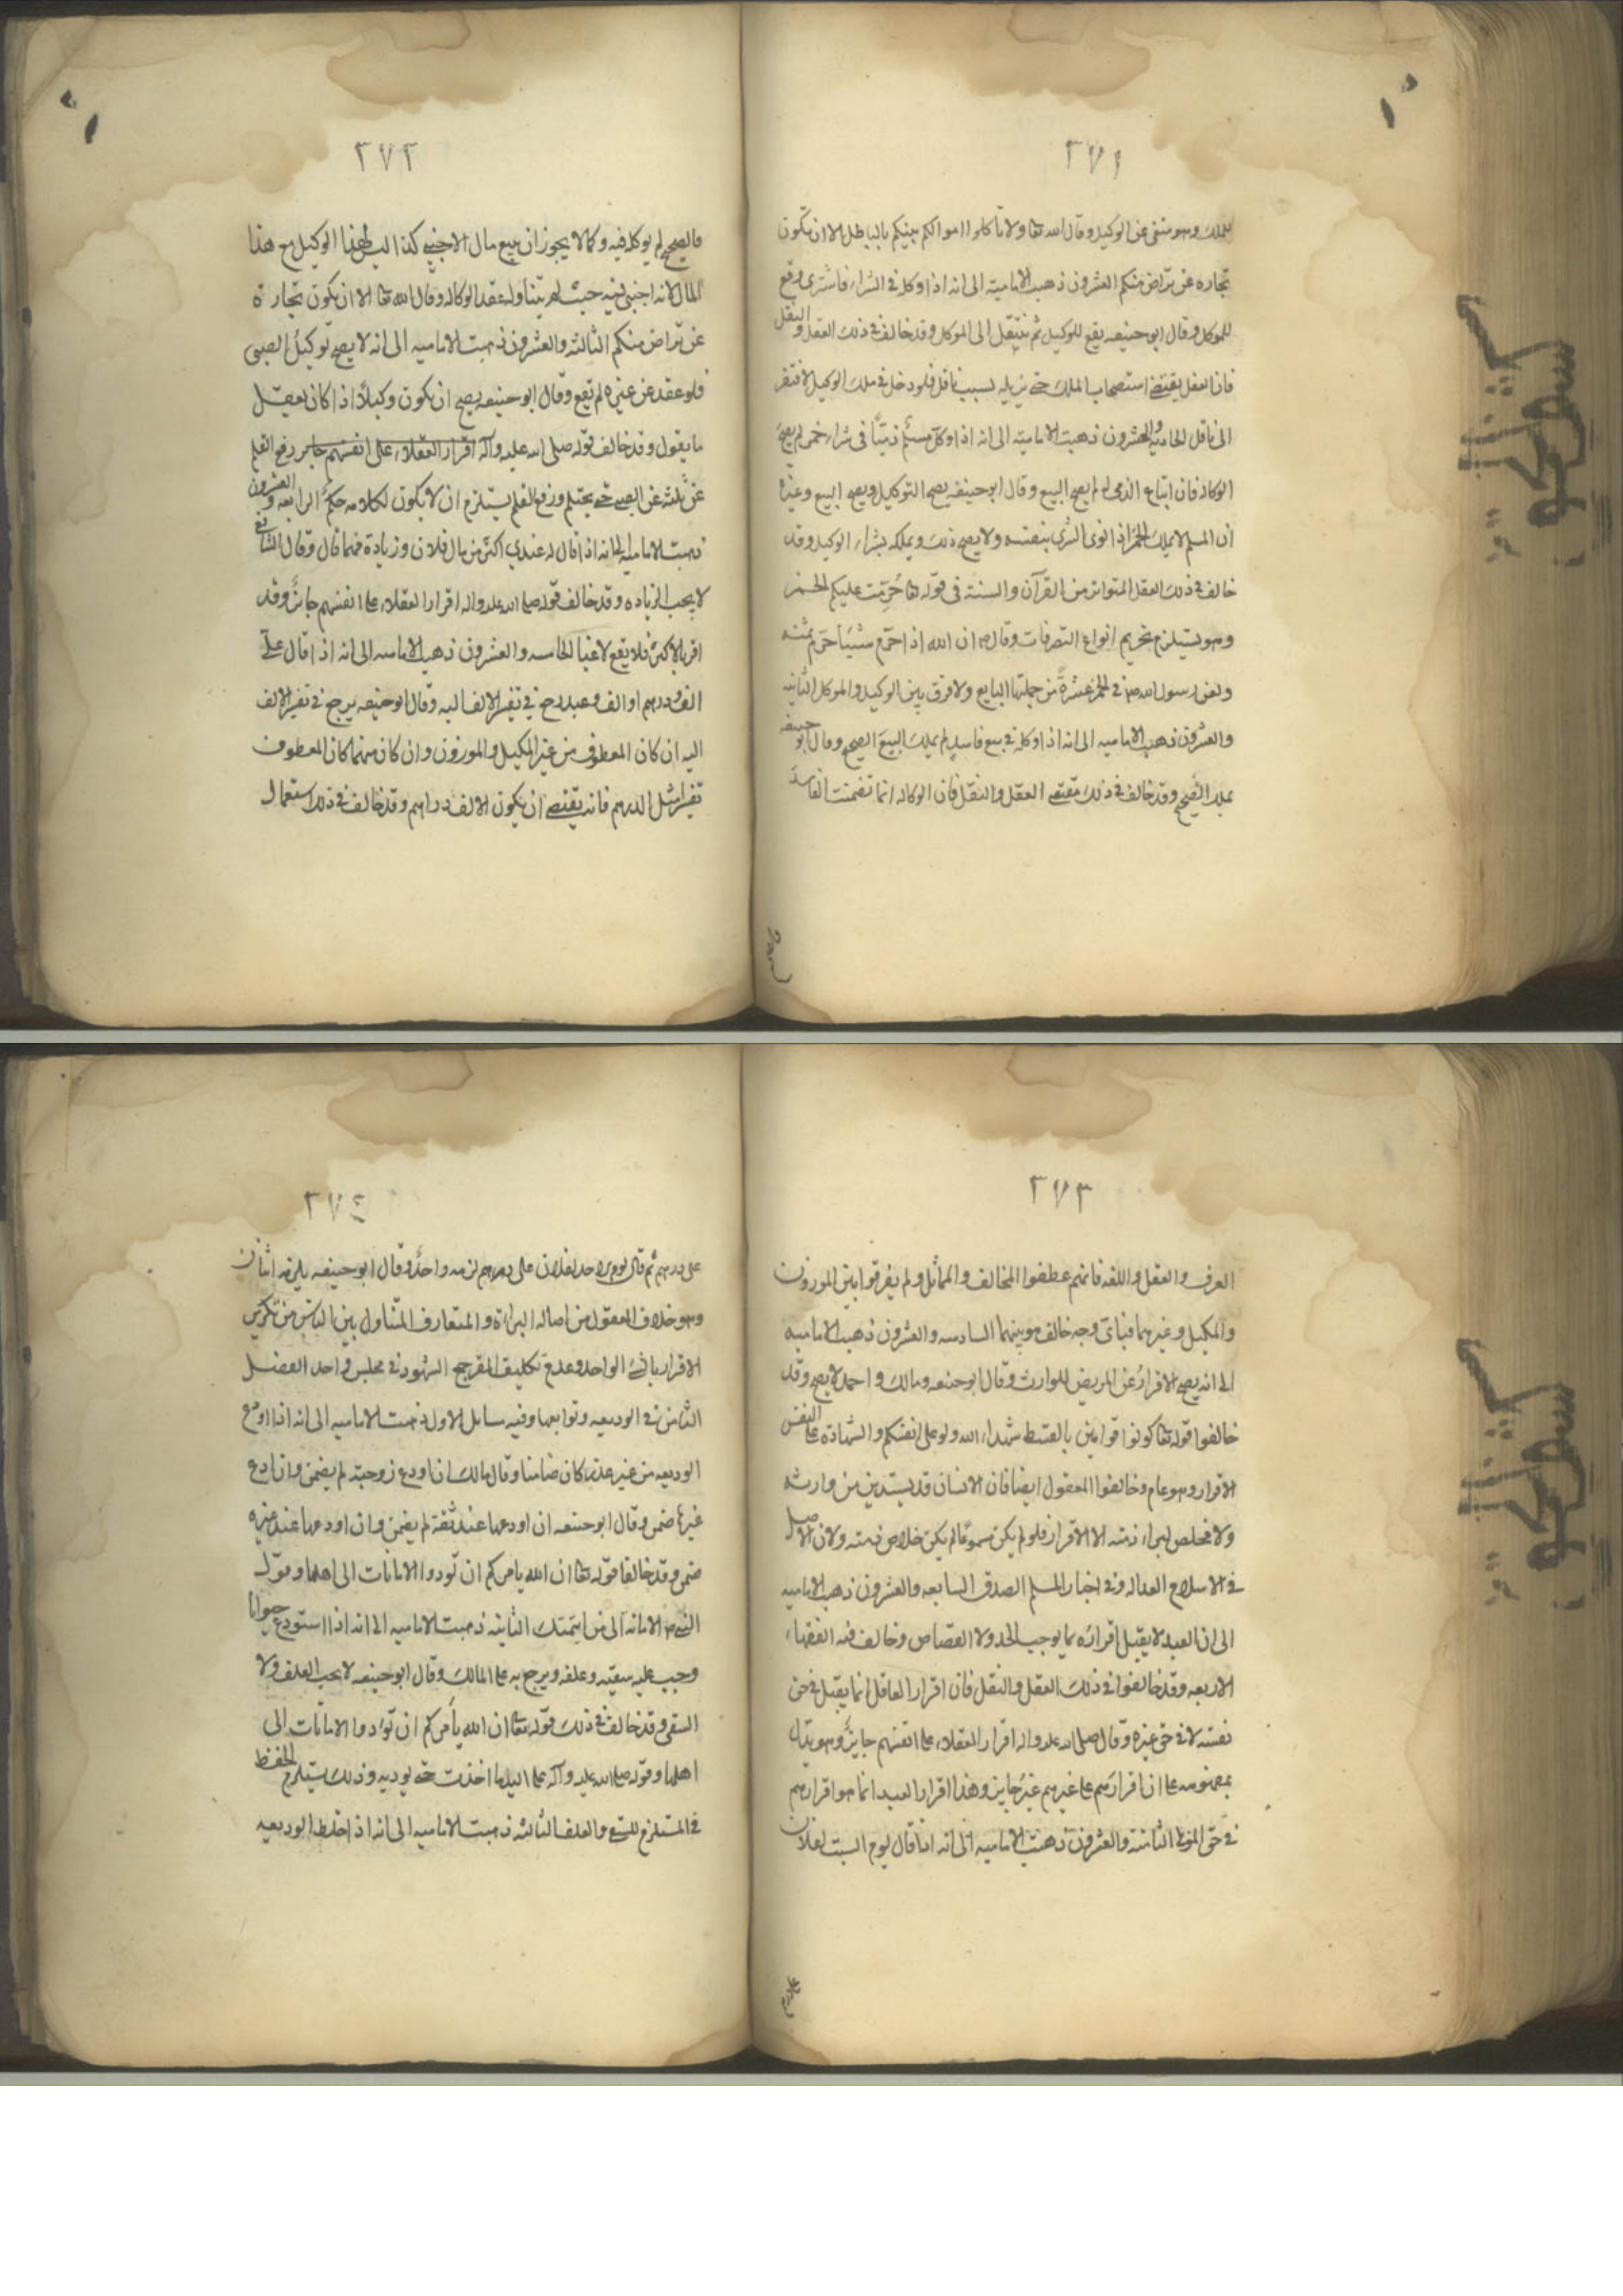 ٢٧١
للملك وهو منفى عن الوكيل وقال الله تعا ولا تاكلوا اموالكم بينكم بالباطل الا ان تكون
تجارة عن تراض منكم العشرون ذهبت الامامية الى انه اذا وكله في الشراء فاشترى وقع
للموكل وقال ابو حنيفه يقع للوكيل ثم ينتقل الى الموكل وقد خالف في ذلك العقل والنقل
فان العقل يقتضى استصحاب الملك حتى يزيله لسبب ناقل فلو دخل في ملك الوكيل لافتقر
الى ناقل الحادية والعشرون ذهبت الامامية الى انه اذا وكل مسلم ذميا في شراء خمر لم يصح
الوكالة فان ابتاع الذمى له لم يصح البيع وقال ابو حنيفه يصح التوكيل ويصح البيع وعنده
ان المسلم لا يملك الخمر اذا نوى الشرى بنفسه ولا يصح ذلك ويملكه بشراء الوكيل وقد
خالف في ذلك العقل المتواتر من القرآن والسنة في قوله تعا حرمت عليكم الخمر
وهو يستلزم تحريم انواع التصرفات وقال ص ان الله اذا حرم شيئا حرم ثمنه
ولعن رسول الله ص في الخمر عشرة من جملتها البايع ولا فرق بين الوكيل والموكل الثانيه
والعشرون ذهبت الاماميه الى انه اذا وكله في بيع فاسد لم يملك البيع الصحيح وقال ابو حنيفه
يملك الصحيح وقد خالف في ذلك مقتضى العقل والنقل فان الوكاله انما تضمنت الفاسد
٢٧٢
فالصحيح لم يوكله فيه وكما لا يجوز ان يبيع مال الاجنبى كذا ليس لهذا الوكيل بيع هذا
المال لانه اجنبى فيه حيث لم يتناوله عقد الوكاله وقال الله تعا الا ان تكون تجارة
عن تراض منكم الثالثه والعشرون ذهبت الاماميه الى انه لا يصح توكيل الصبى
فلو عقد عن غيره لم تقع وقال ابو حنيفه يصح ان يكون وكيلا اذا كان يعقل
ما يقول وقد خالف قوله صلى الله عليه وآله اقرار العقلاء على انفسهم جايز رفع القلم
عن ثلثه عن الصبى حتى يحتلم ورفع القلم يستلزم ان لا يكون لكلامه حكم الرابعه والعشرون
ذهبت الاماميه الى انه اذا قال له عندي اكثر من مال فلان وزيادة فيما قال وقال الشافعى
لا يجب الزياده وقد خالف قوله صلى الله عليه واله اقرار العقلاء على انفسهم جائز وقد
اقر بالاكثر فلا يقع لاغيا الخامسه والعشرون ذهبت الاماميه الى انه اذا قال على
الف ودرهم او الف وعبد رجع في تفسير الالف اليه وقال ابو حنيفه يرجع في تفسير الالف
اليه ان كان المعطوف من غير المكيل والموزون وان كان منهما كان المعطوف
تفسيرا مثل الدرهم فانه يقتضى ان يكون الالف دراهم وقد خالف في ذلك استعمال
٢٧٣
العرف والعقل واللغه فانهم عطفوا المخالف والمماثل ولم يفرقوا بين الموزون
والمكيل وغيرهما فباى وجه خالف هو بينهما السادسه والعشرون ذهبت الاماميه
الى انه يصح الاقرار عن المريض للوارث وقال ابو حنيفه ومالك واحمد لا يصح وقد
خالفوا قوله تعا كونوا قوامين بالقسط شهداء لله ولو على انفسكم والشهادة على النفس
الاقرار وهو عام وخالفوا المعقول ايضا فان الانسان قد يستدين من وارثه
ولا مخلص لبراءة ذمته الا الاقرار فلو لم يكن مسموعا لم يكن خلاص ذمته ولان الاصل
في الاسلام العداله وفي اخبار المسلم الصدق السابعه والعشرون ذهبت الاماميه
الى ان العبد لا يقبل اقراره بما يوجب الحد ولا القصاص وخالف فيه الفقهاء
الاربعه وقد خالفوا في ذلك العقل والنقل فان اقرار العاقل انما يقبل في حق
نفسه لا في حق غيره وقال صلى الله عليه واله اقرار العقلاء على انفسهم جايز وهو يدل
بمفهومه على ان اقرارهم على غيرهم غير جايز وهذا اقرار العبد انما هو اقرارهم
في حق المولى الثامنة والعشرون ذهبت الاماميه الى انه اذا قال يوم السبت لفلان
٢٧٤
على درهم ثم قال يوم الاحد لفلان على درهم لزمه واحد وقال ابو حنيفه يلزمه اثنان
وهو خلاف المعقول من اصاله البراءة والمتعارف المتناول بين الناس من تكرير
الاقرار بالشئ الواحد وعدم تكليف المقر جمع الشهود في مجلس واحد الفصل
الثامن في الوديعه وتوابعها وفيه مسايل الاول ذهبت الاماميه الى انه اذا اودع
الوديعه من غير عذر كان ضامنا وقال مالك ان اودع زوجته لم يضمن وان اودع
غيرها ضمن وقال ابو حنيفه ان اودعها عند ثقة لم يضمن وان اودعها عند غيره
ضمن وقد خالفا قوله تعا ان الله يامركم ان تودوا الامانات الى اهلها وقوله
النبى ص الامانه الى من ايتمنك الثانيه ذهبت الاماميه الى انه اذا استودع حيوانا
وجب عليه سقيه وعلفه ويرجع به على المالك وقال ابو حنيفه لا يجب العلف ولا
السقى وقد خالف في ذلك قوله تعا ان الله يأمركم ان تؤدوا الامانات الى
اهلها وقوله صلى الله عليه وآله على اليد ما اخذت حتى يوديه وذلك يستلزم الحفظ
في المستلزم للسقى والعلف الثالثه ذهبت الاماميه الى انه اذا خلط الوديعه